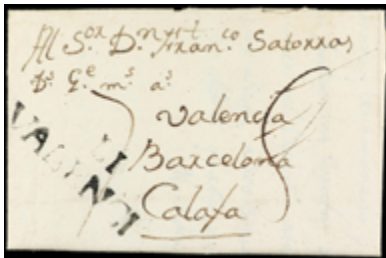 Al S.or D.n Fran.co Satorras
D.s G.e m.s a.s
Valencia
Barcelona
Calafa
VALENCI